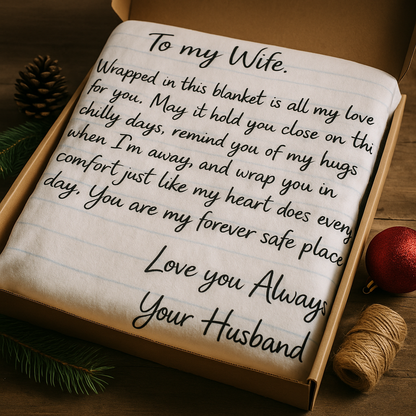 To my Wife.
Wrapped in this blanket is all my love
for you. May it hold you close on thi
chilly days, remind you of my hugs
when I'm away, and wrap you in
comfort just like my heart does every
day. You are my forever safe place
Love you Always
Your Husband